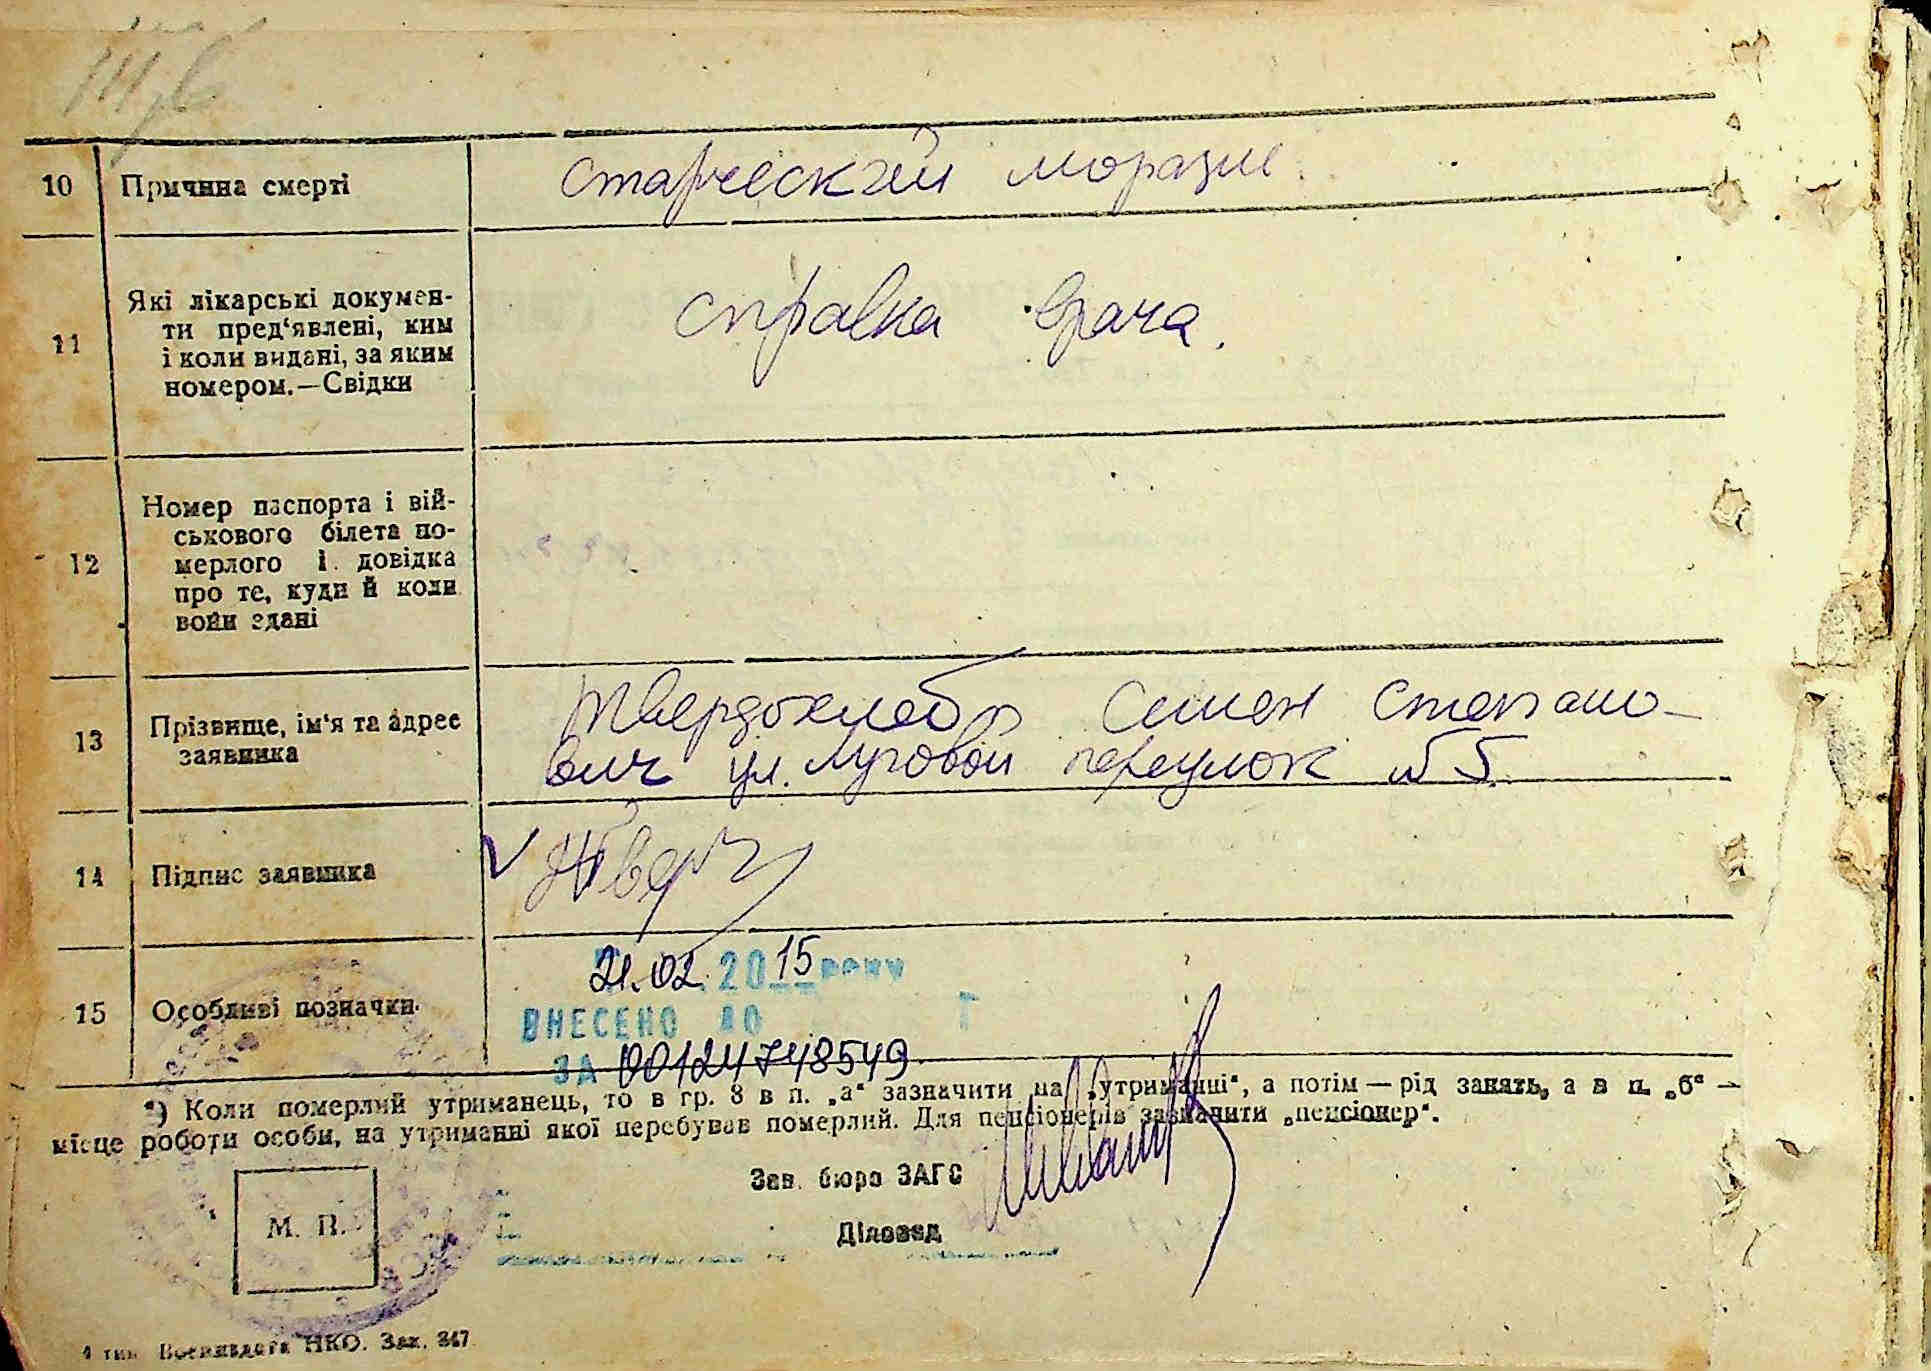 10
Причина смерті
старческий моразм.
11
Які лікарські докумен-
ти пред‘явлені, ким
і коли видані, за яким
номером.—Свідки
справка врача.
12
Номер паспорта і вій-
ськового білета по-
мерлого і довідка
про те, куди й коли
вони здані
13
Прізвище, ім‘я та адрес
заявника
Твердохлеб Семен Степано-
вич ул. Луговой переулок №5.
14
Підпис заявника
15
Особливі позначки
21.02.2015 року
ВНЕСЕНО ДО
ЗА 00124748549
*) Коли померлий утриманець, то в гр. 8 в п. „а“ зазначити на „утриманні“, а потім — рід занять, а в п. „б“ —
місце роботи особи, на утриманні якої перебував померлий. Для пенсіонерів зазначити „пенсіонер“.
Зав. бюро ЗАГС
М. П.
Діловод
4 тип. Воениздата НКО. Зак. 347